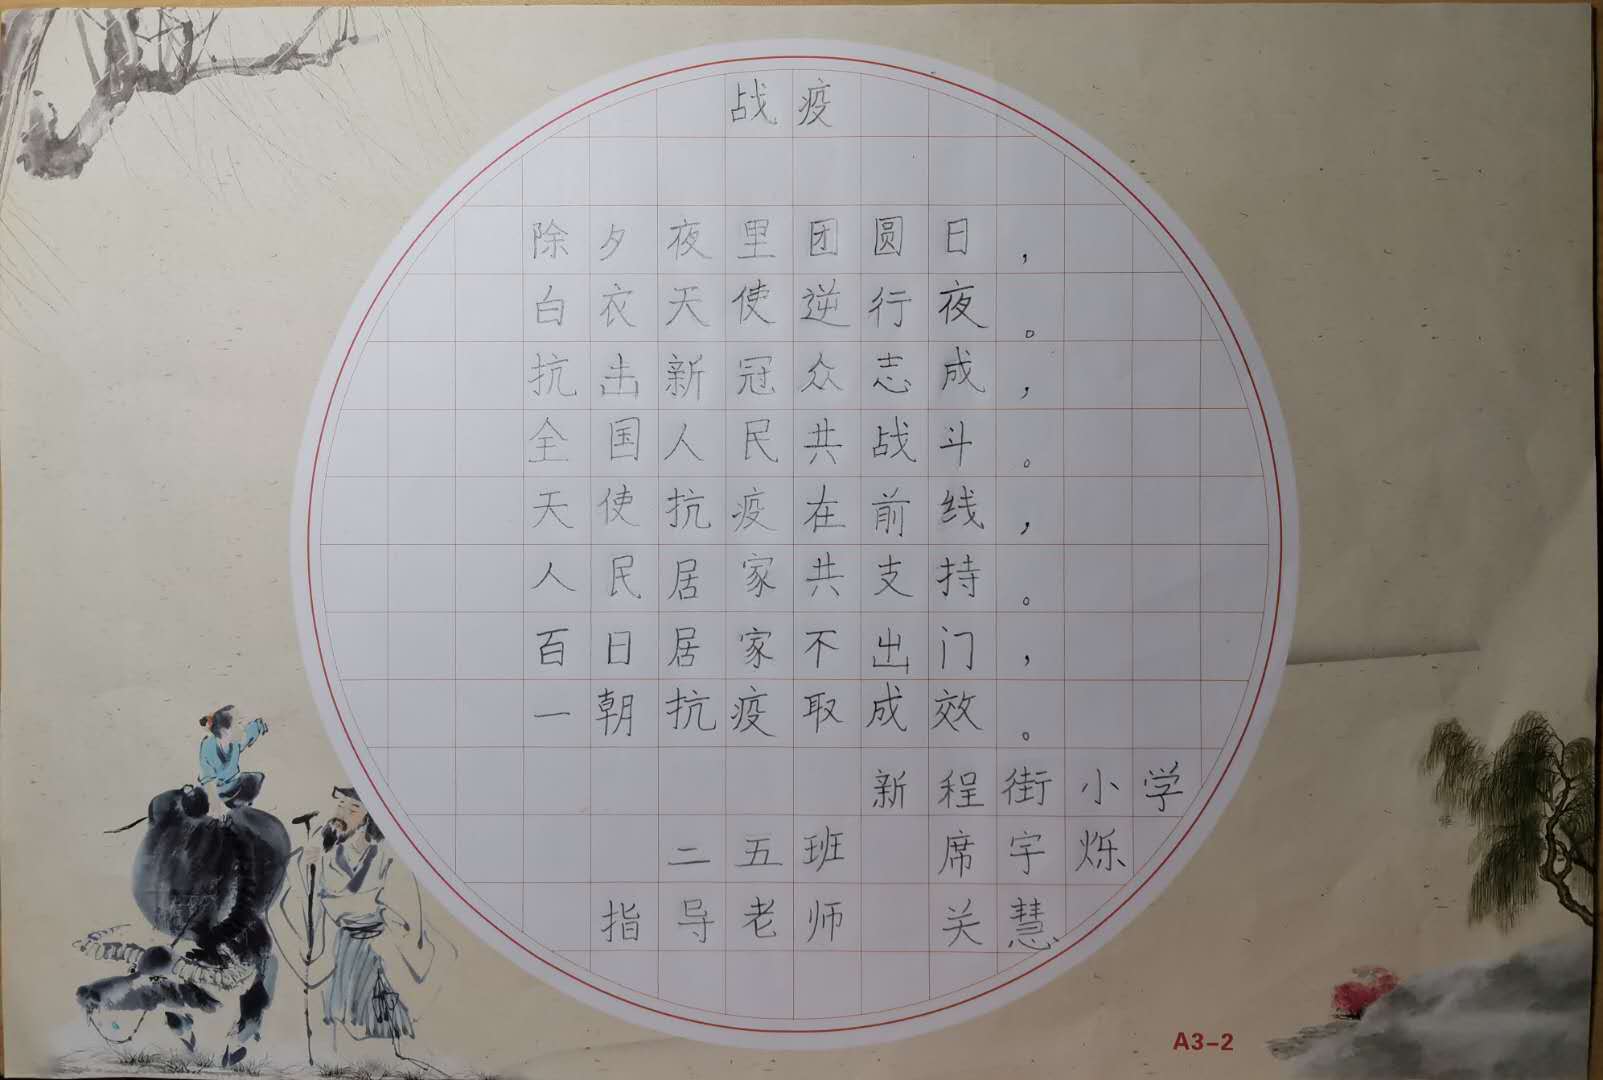 战疫
除夕夜里团圆日，
白衣天使逆行夜。
抗击新冠众志成，
全国人民共战斗。
天使抗疫在前线，
人民居家共支持。
百日居家不出门，
一朝抗疫取成效。
新程街小学
二五班 席宇烁
指导老师 关慧
A3-2